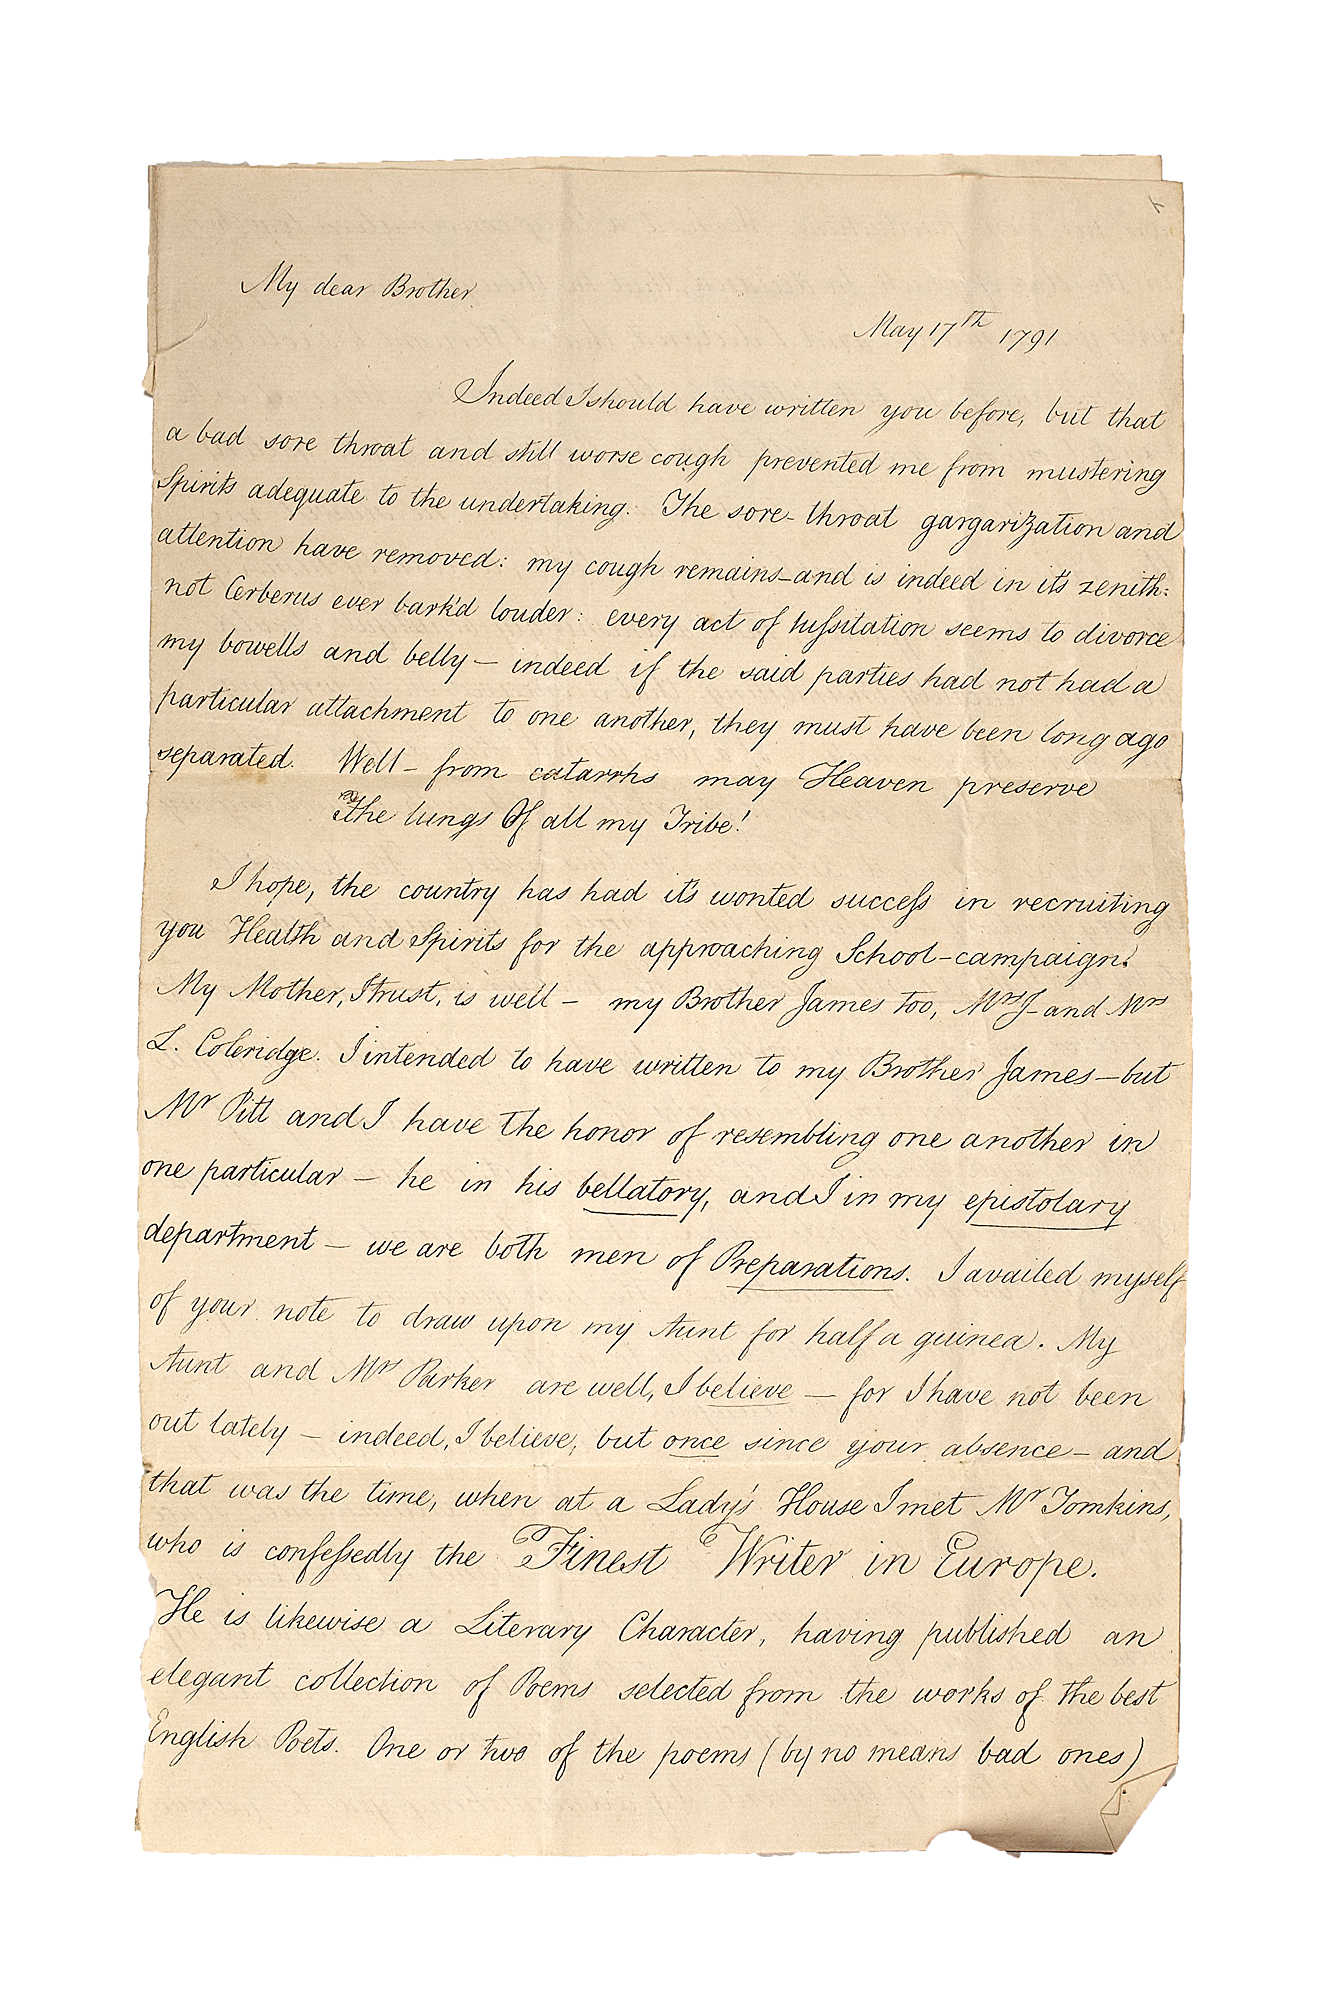 My dear Brother
May 17th 1791
Indeed I should have written you before, but that
a bad sore throat and still worse cough prevented me from mustering
Spirits adequate to the undertaking. The sore-throat gargarization and
attention have removed: my cough remains—and is indeed in it's zenith:
not Cerberus ever bark'd louder: every act of tussitation seems to divorce
my bowells and belly— indeed if the said parties had not had a
particular attachment to one another, they must have been long ago
separated. Well— from catarrhs may Heaven preserve
The lungs Of all my Tribe!
I hope, the country has had it's wonted success in recruiting
you Health and Spirits for the approaching School-campaign.
My Mother, I trust, is well — my Brother James too, Mrs J— and Mrs
L. Coleridge. I intended to have written to my Brother James—but
Mr Pitt and I have the honor of resembling one another in
one particular — he in his bellatory, and I in my epistolary
department — we are both men of Preparations. I availed myself
of your note to draw upon my Aunt for half a guinea. My
Aunt and Mrs Parker are well, I believe — for I have not been
out lately — indeed, I believe, but once since your absence — and
that was the time, when at a Lady's House I met Mr Tomkins,
who is confessedly the Finest Writer in Europe.
He is likewise a Literary Character, having published an
elegant collection of Poems selected from the works of the best
English Poets. One or two of the poems (by no means bad ones)